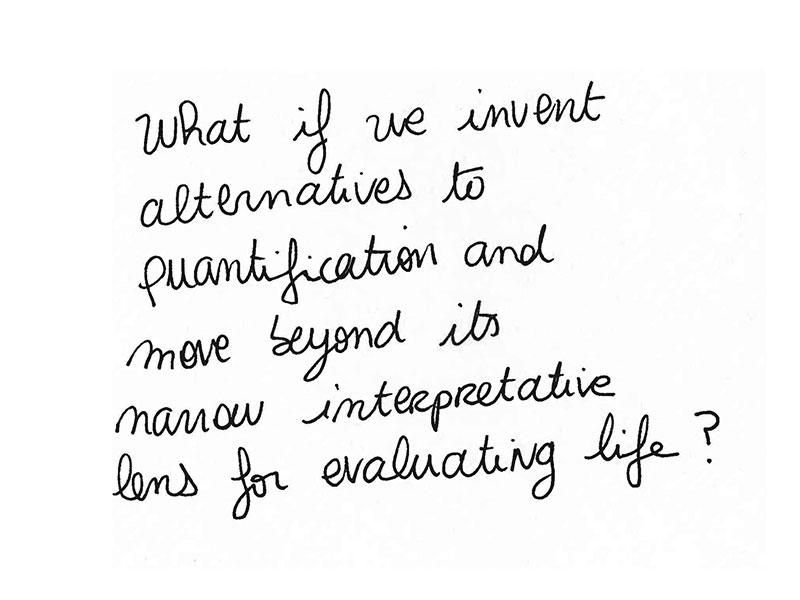 What if we invent
alternatives to
quantification and
move beyond its
narrow interpretative
lens for evaluating life?